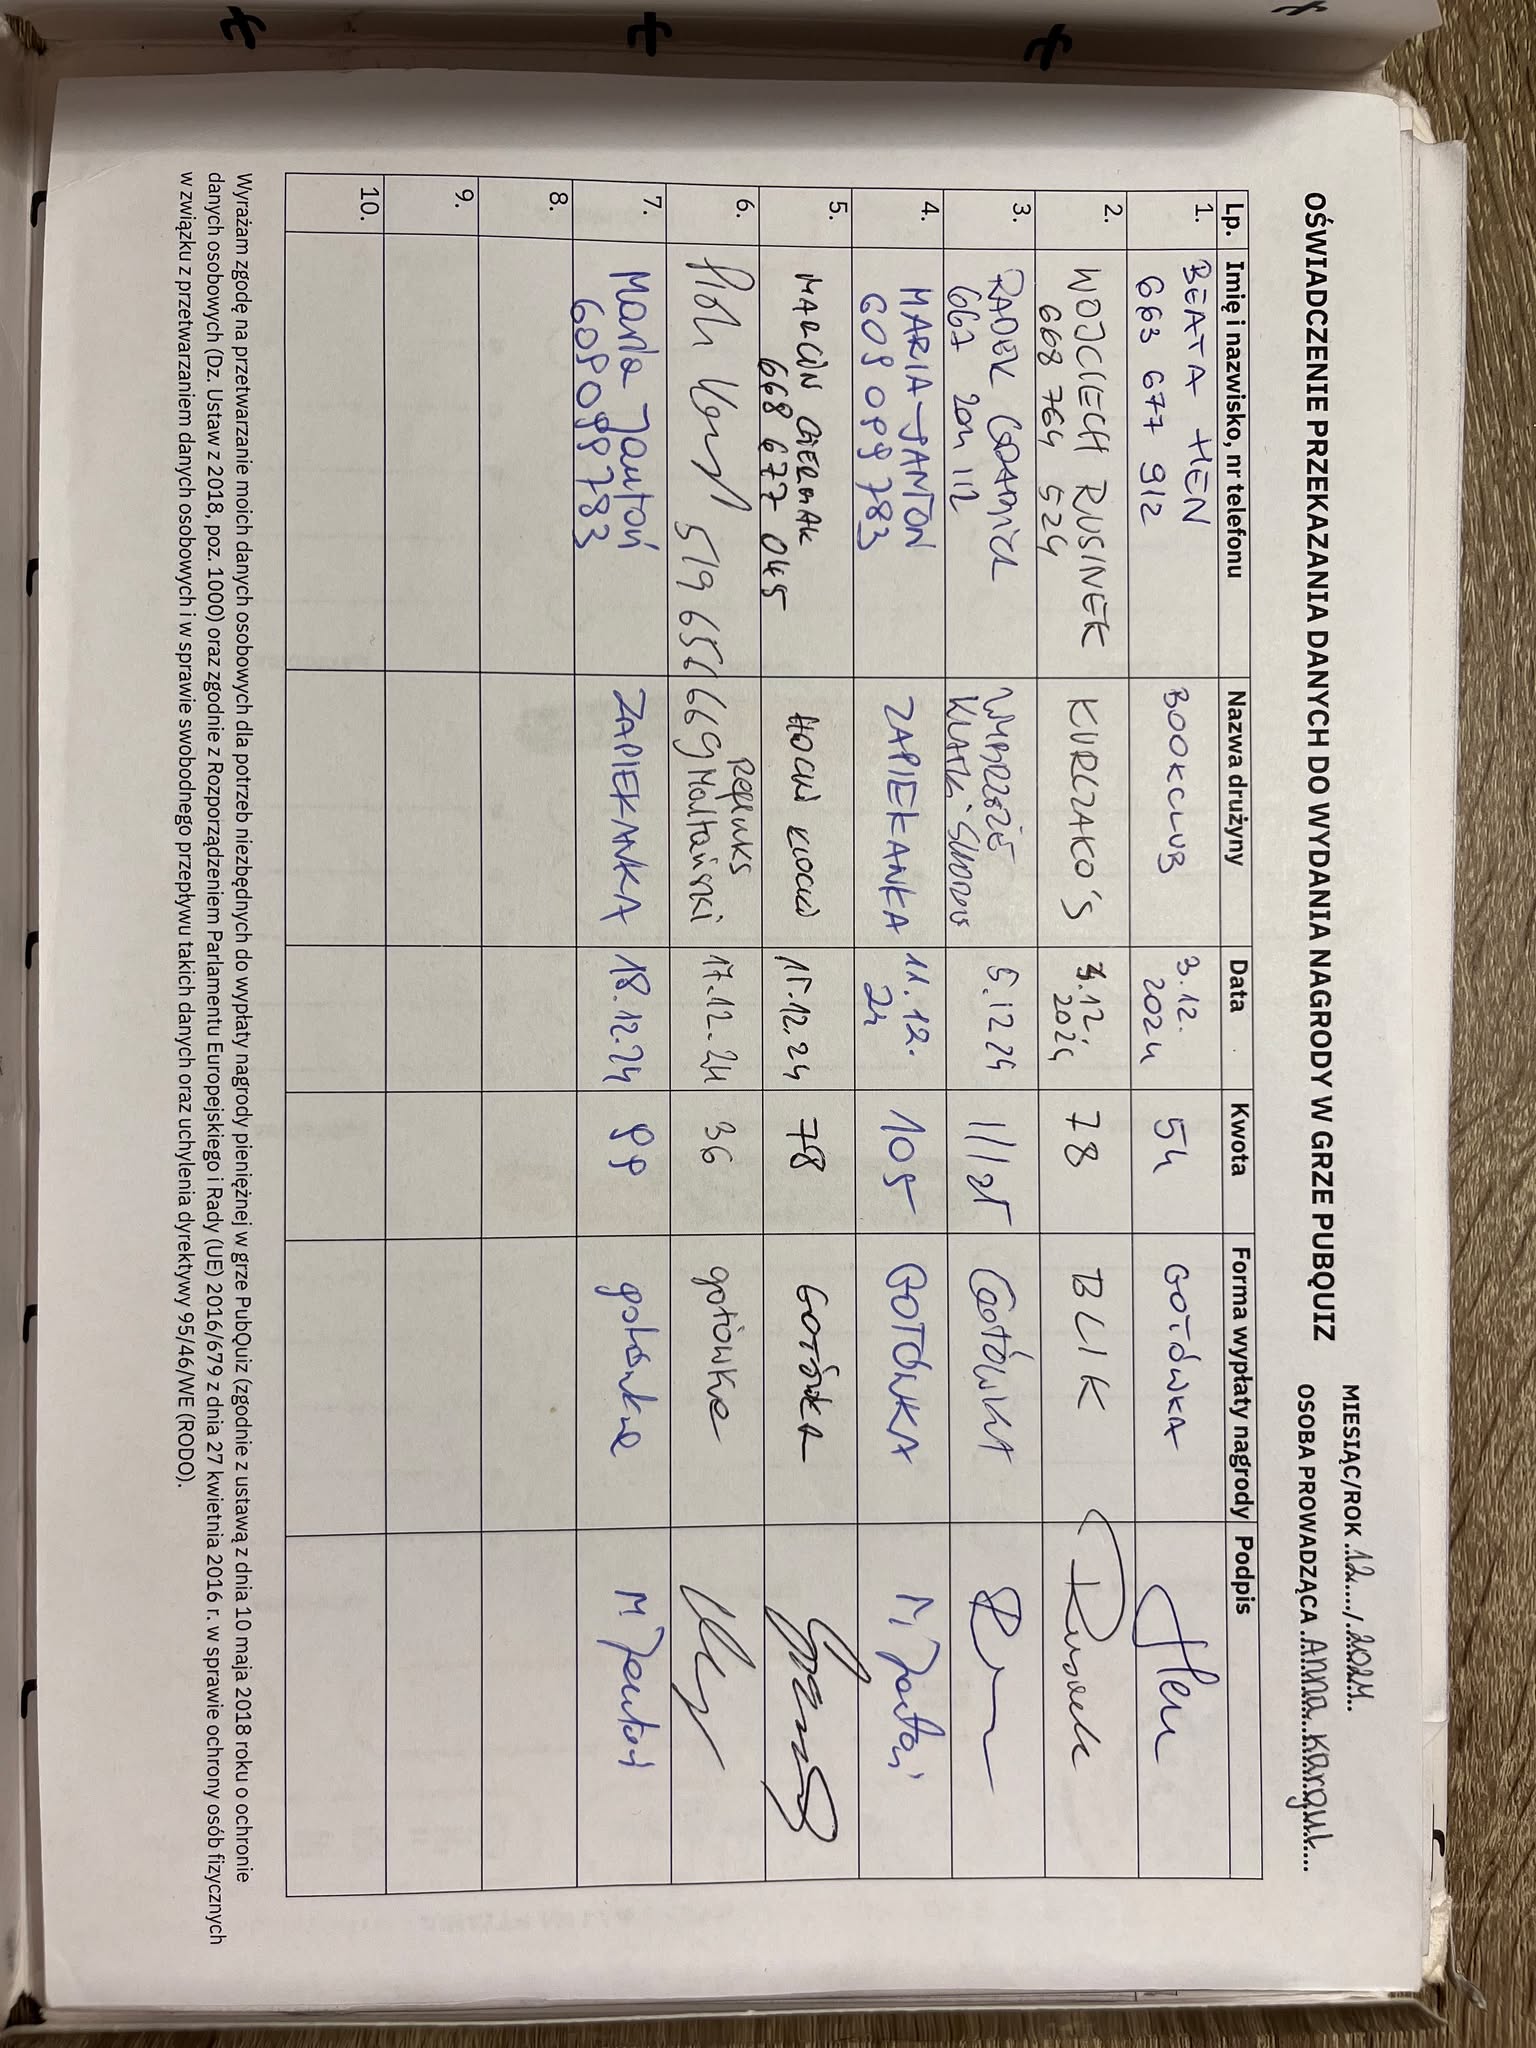 MIESIĄC/ROK 12 / 2024
OŚWIADCZENIE PRZEKAZANIA DANYCH DO WYDANIA NAGRODY W GRZE PUBQUIZ
OSOBA PROWADZĄCA Anna Karguk
Lp. Imię i nazwisko, nr telefonu Nazwa drużyny Data Kwota Forma wypłaty nagrody Podpis
1. BEATA HEN BOOKCLUB 3.12. 54 GOTÓWKA Hen
663 677 912 2024
2. WOJCIECH RUSINEK KURCZAKO'S 3.12. 78 BLIK Rusinek
668 764 524 2024
3. RADEK WYBRZEŻE 5.12.24 111 zł Gotówka
667 204 112 KLATKI SCHODOW
4. MARIA JANTOŃ ZAPIEKANKA 11.12. 105 GOTÓWKA M Jantoń
609 099 783 24
5. MARCIN HOCKI KLOCKI 15.12.24 78 GOTÓWKA
668 677 045
6. Piotr 519 656 669 Repliks 17.12.24 36 gotówka
Maltański
7. Maria Jantoń ZAPIEKANKA 18.12.24 99 gotówka M Jantoń
609 099 783
8.
9.
10.
Wyrażam zgodę na przetwarzanie moich danych osobowych dla potrzeb niezbędnych do wypłaty nagrody pieniężnej w grze PubQuiz (zgodnie z ustawą z dnia 10 maja 2018 roku o ochronie
danych osobowych (Dz. Ustaw z 2018, poz. 1000) oraz zgodnie z Rozporządzeniem Parlamentu Europejskiego i Rady (UE) 2016/679 z dnia 27 kwietnia 2016 r. w sprawie ochrony osób fizycznych
w związku z przetwarzaniem danych osobowych i w sprawie swobodnego przepływu takich danych oraz uchylenia dyrektywy 95/46/WE (RODO).